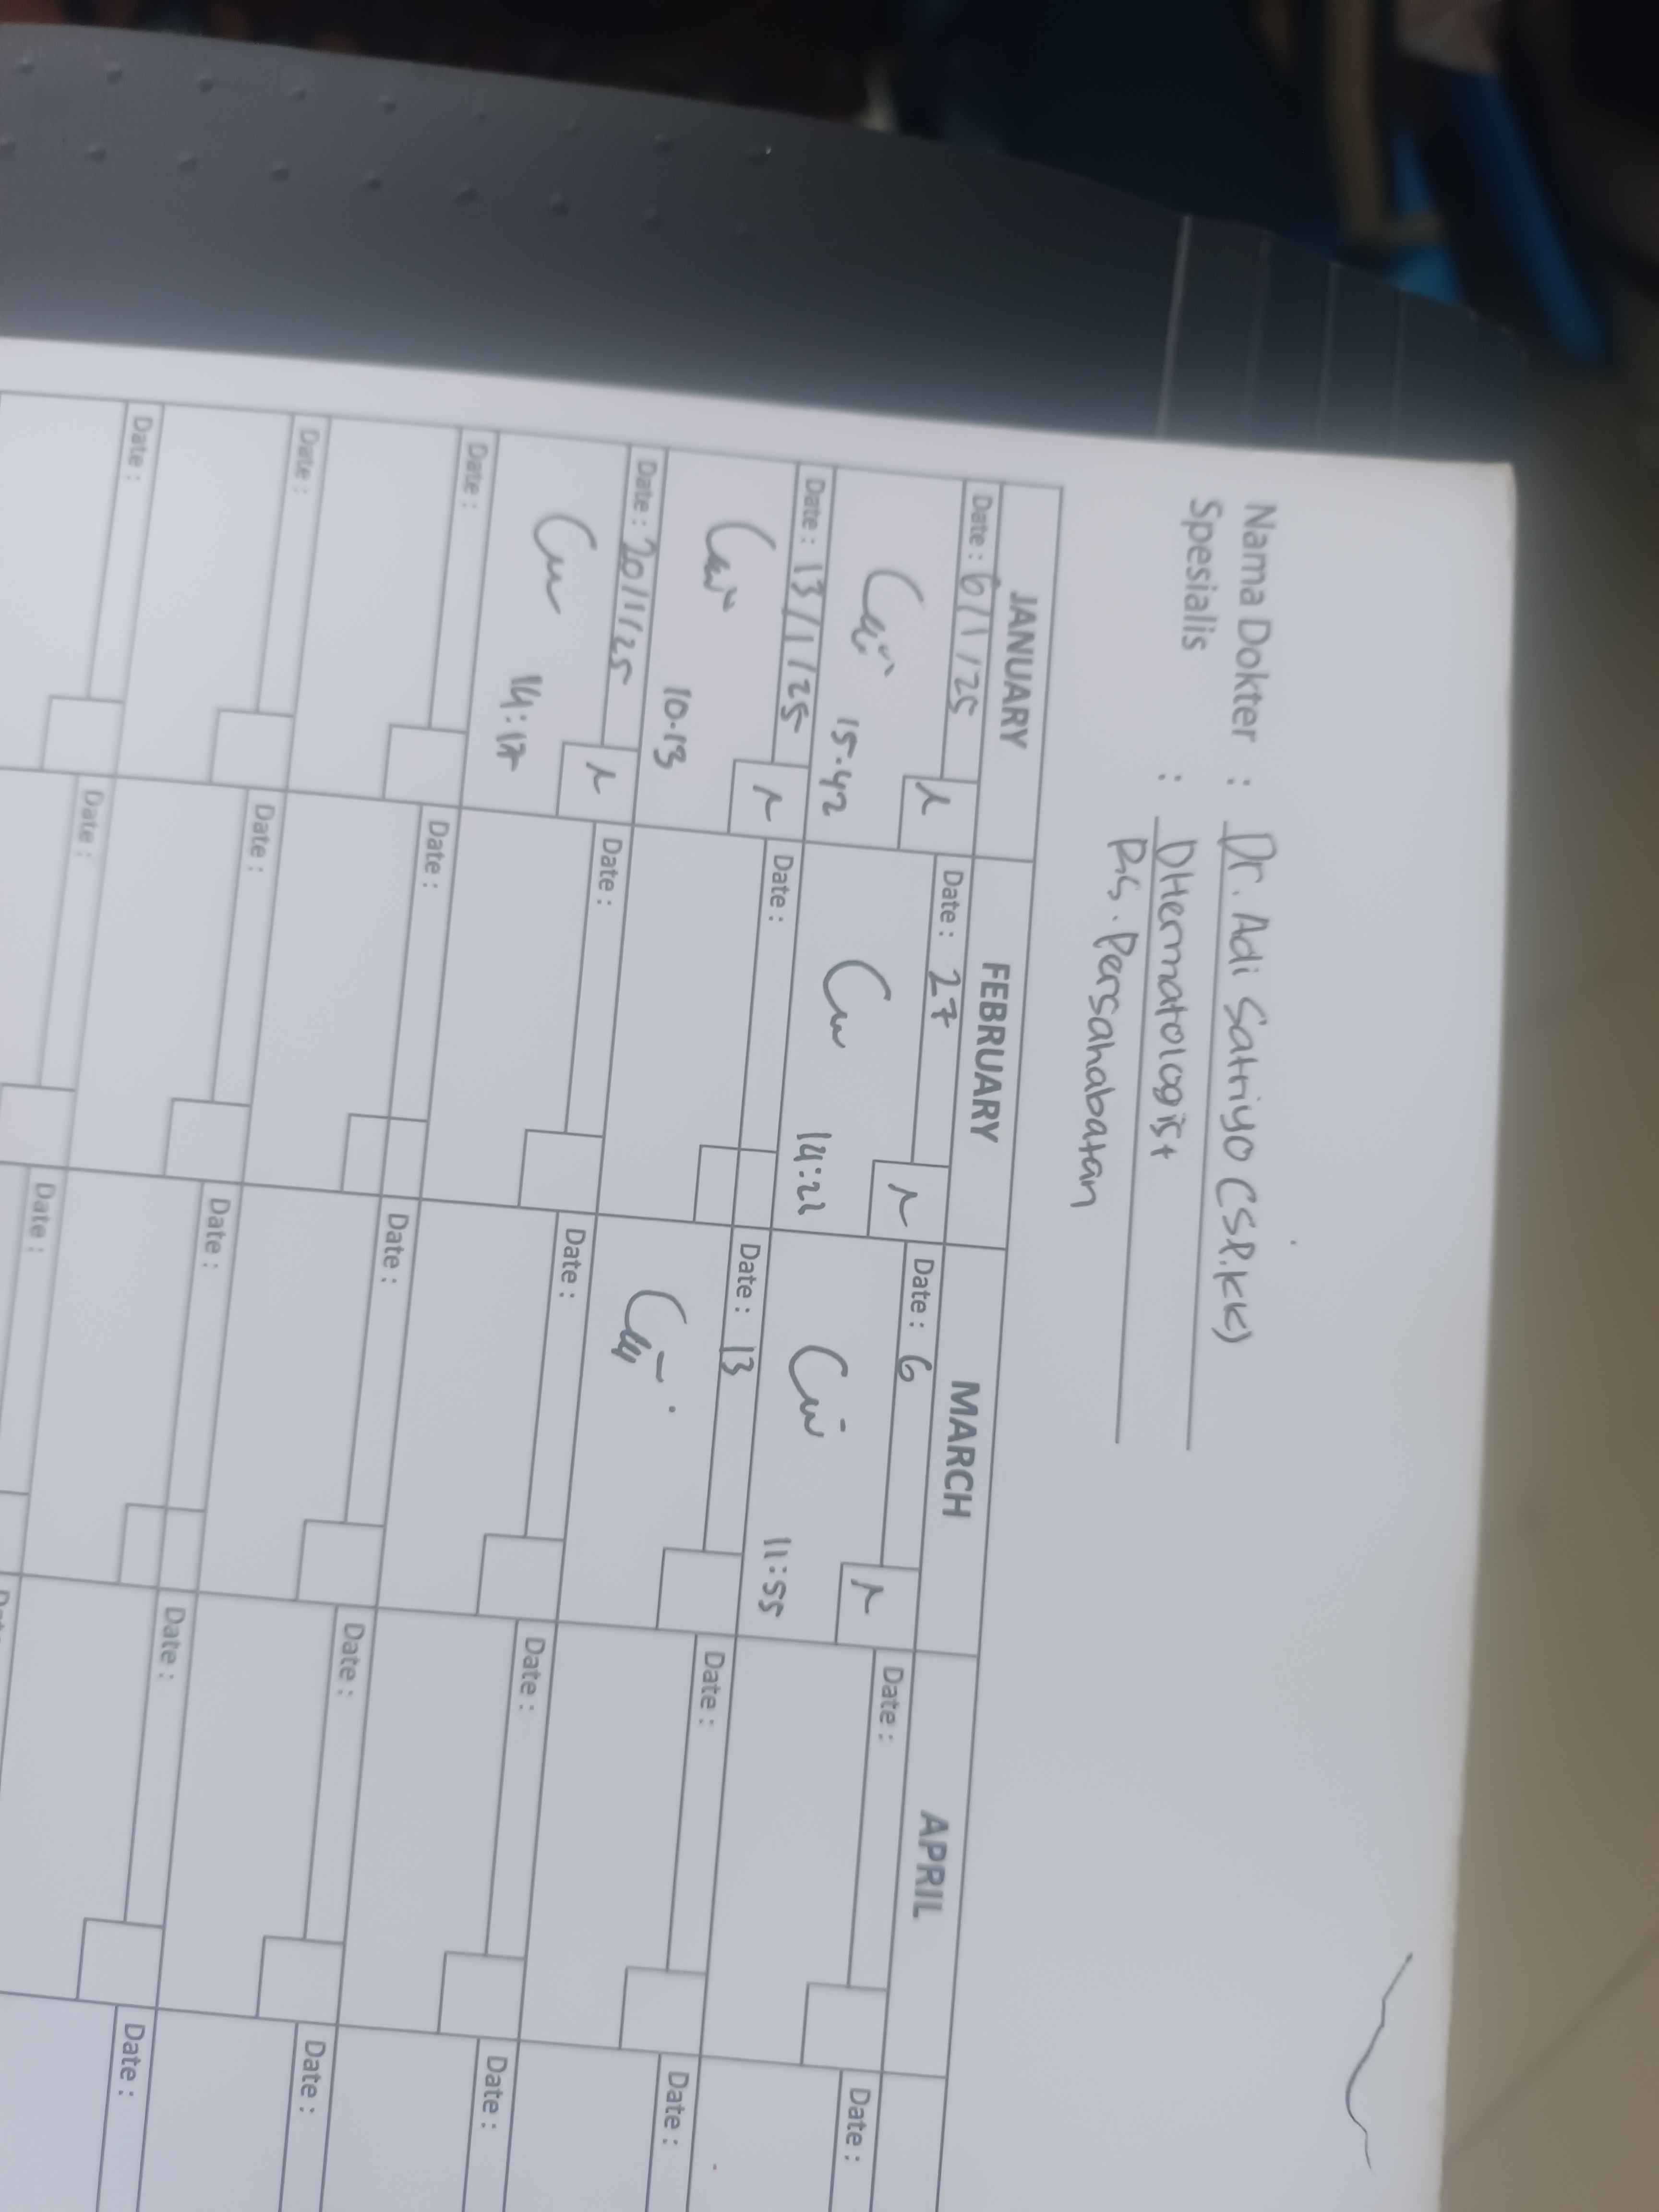 Nama Dokter : Dr. Adi Satriyo (SP.KK)
Spesialis : DHermatologist
RS. Persahabatan
JANUARY FEBRUARY MARCH APRIL
Date : 6/1/25 Date : 27 Date : 6 Date : Date :
15.42 14:22 11:55
Date : 13/1/25 Date : Date : 13 Date : Date :
10.13
Date : 20/1/25 Date : Date : Date : Date :
14:17
Date : Date : Date : Date : Date :
Date : Date : Date : Date : Date :
Date : Date : Date :